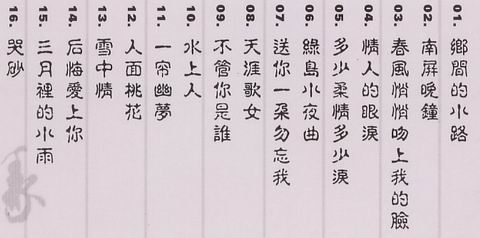 01. 鄉間的小路
02. 南屏晚鐘
03. 春風悄悄吻上我的臉
04. 情人的眼淚
05. 多少柔情多少淚
06. 綠島小夜曲
07. 送你一朵勿忘我
08. 天涯歌女
09. 不管你是誰
10. 水上人
11. 一帘幽夢
12. 人面桃花
13. 雪中情
14. 后悔愛上你
15. 三月裡的小雨
16. 哭砂